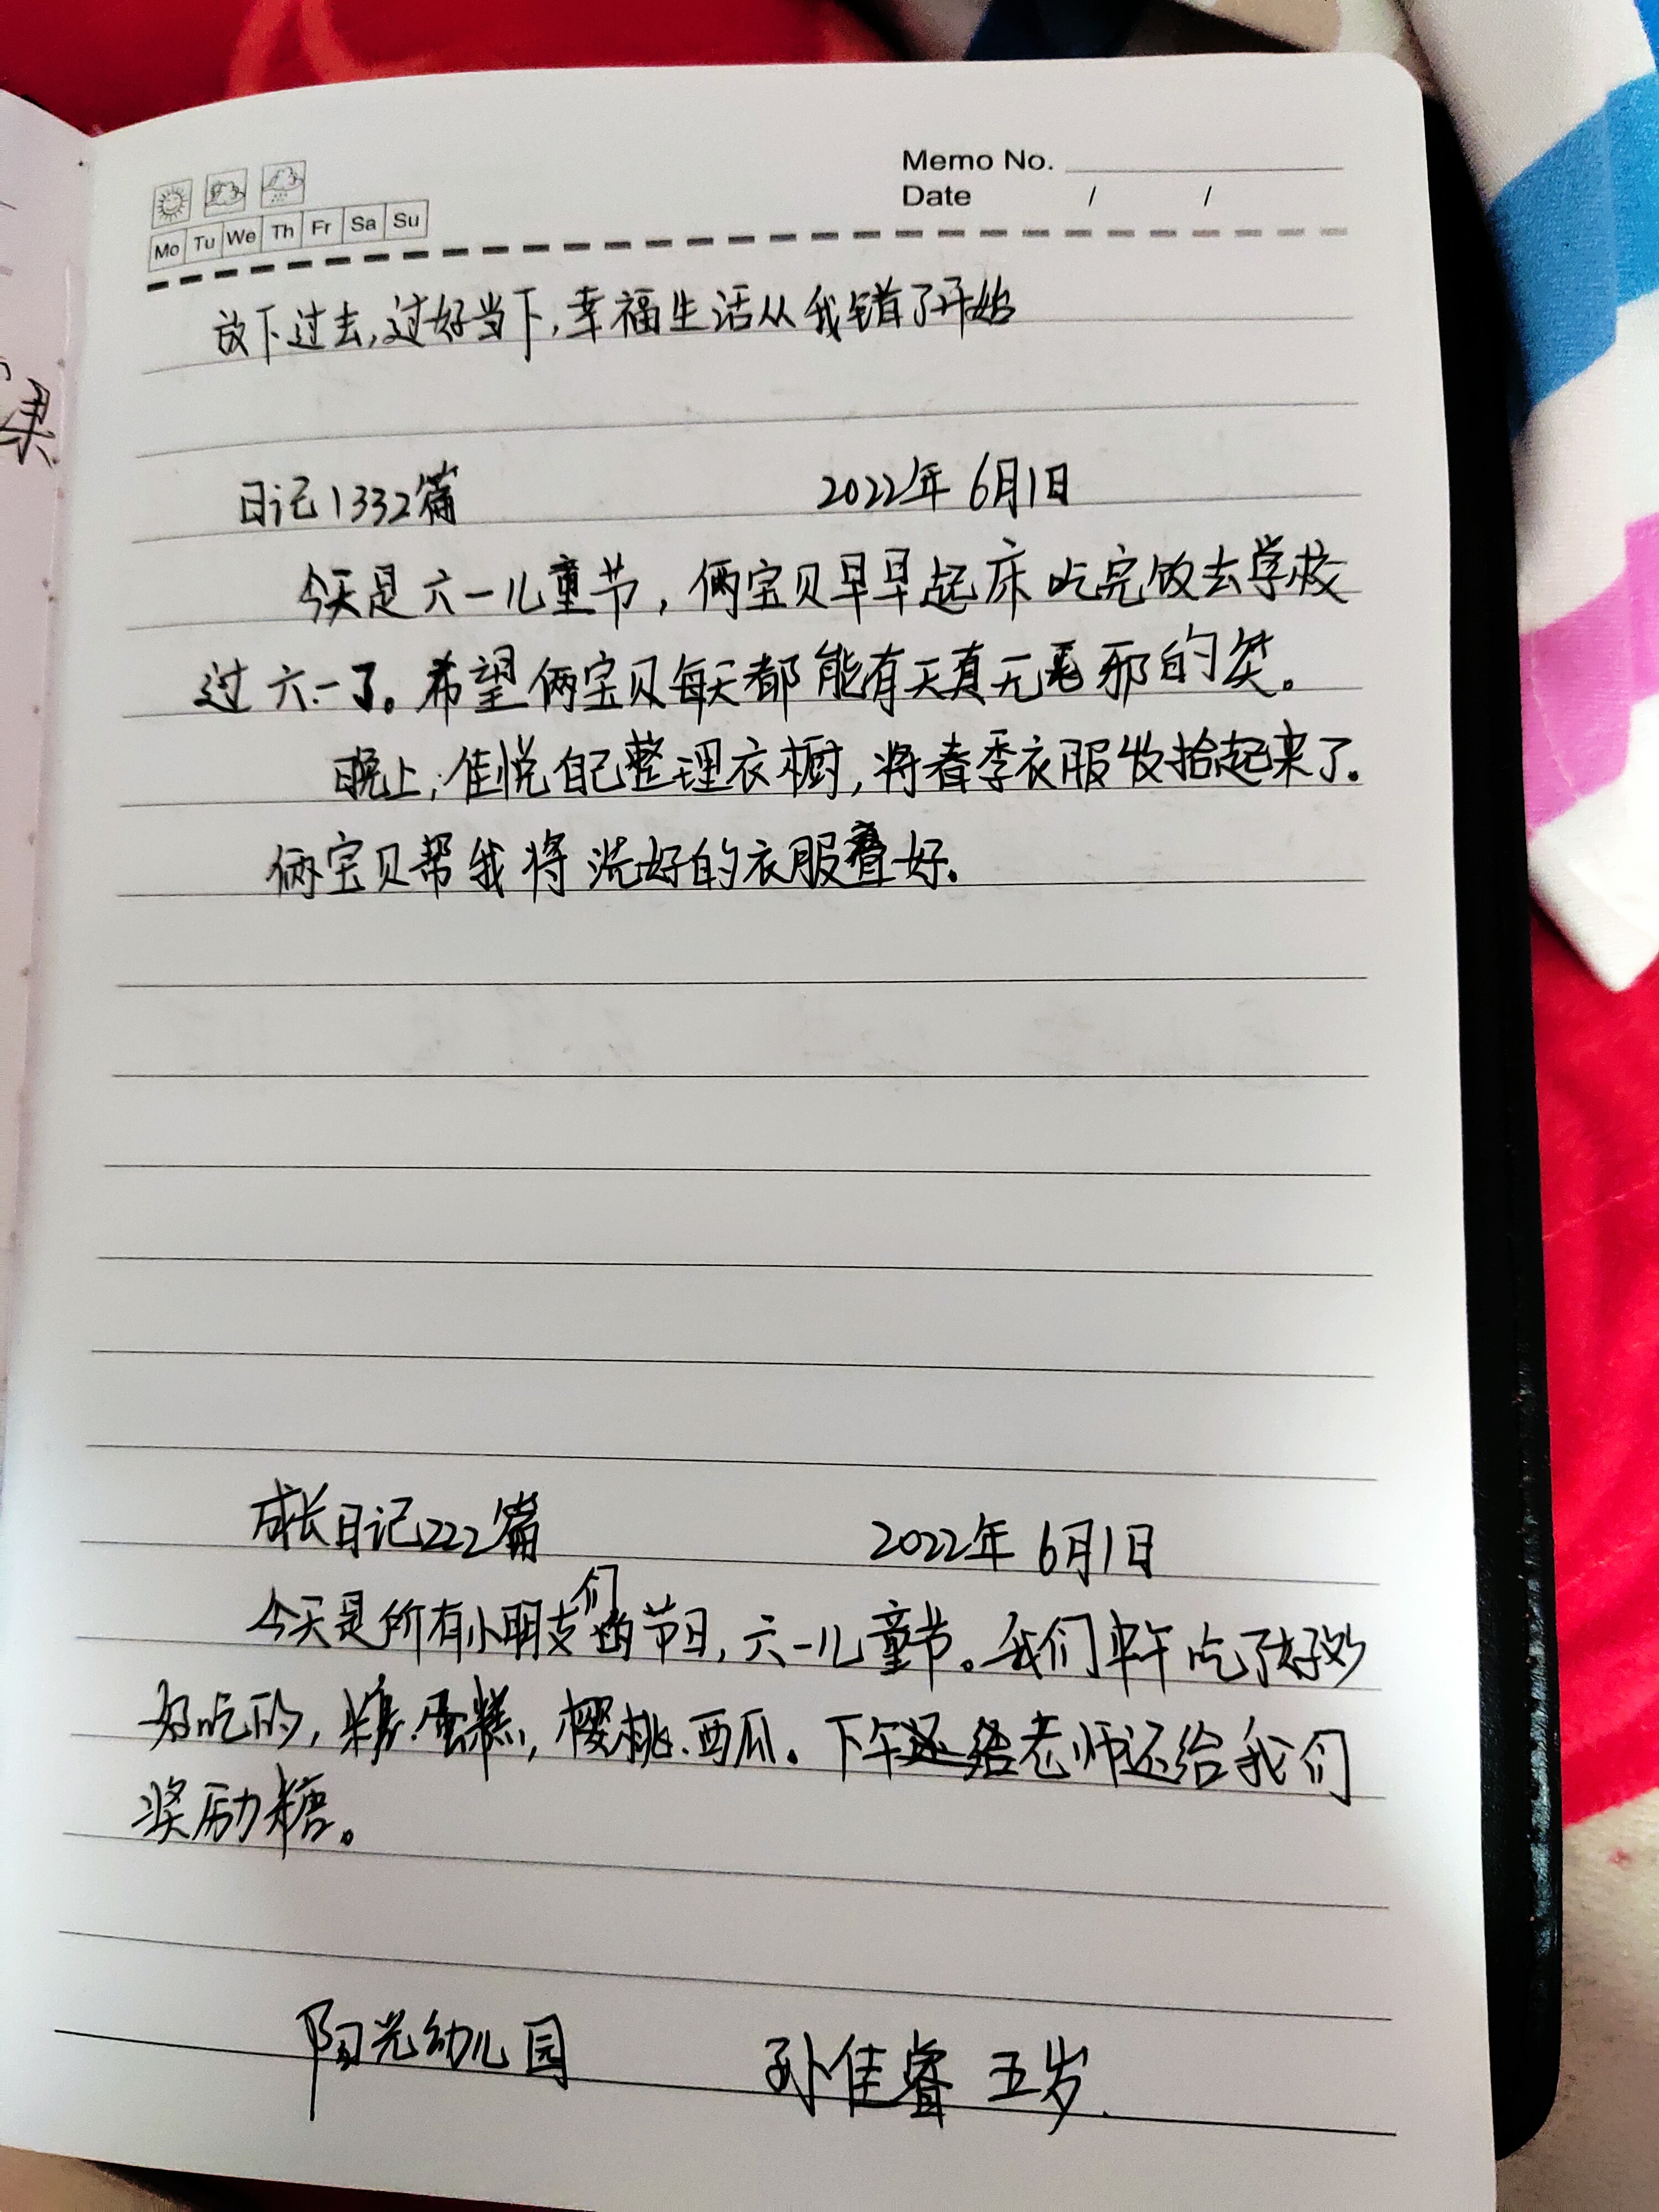 Memo No.
Date / /
Mo Tu We Th Fr Sa Su
放下过去,过好当下,幸福生活从我错了开始
日记1332篇 2022年6月1日
今天是六一儿童节,俩宝贝早早起床吃完饭去学校
过六一了。希望俩宝贝每天都能有天真无邪的笑。
晚上,佳悦自己整理衣橱,将春季衣服收拾起来了.
俩宝贝帮我将洗好的衣服叠好.
成长日记222篇 2022年6月1日
今天是所有小朋友们的节日,六一儿童节。我们中午吃了好多
好吃的,糖.蛋糕,樱桃.西瓜。下午老师还给我们
奖励糖。
阳光幼儿园 孙佳睿 五岁.